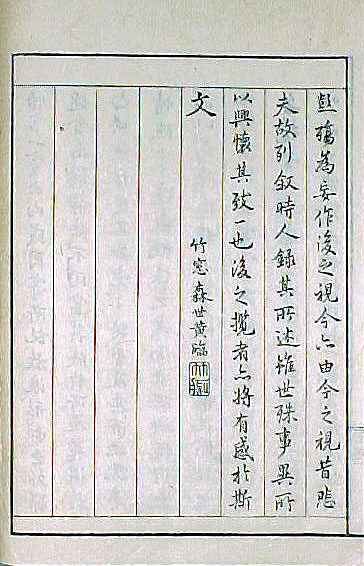 彭殤為妄作後之視今亦由今之視昔悲
夫故列敘時人錄其所述雖世殊事異所
以興懷其致一也後之攬者亦將有感於斯
文
竹窓森世黄臨